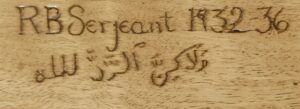 RB Serjeant 1932-36
وَلَاكِنَّ ٱلرَّدَّ لله